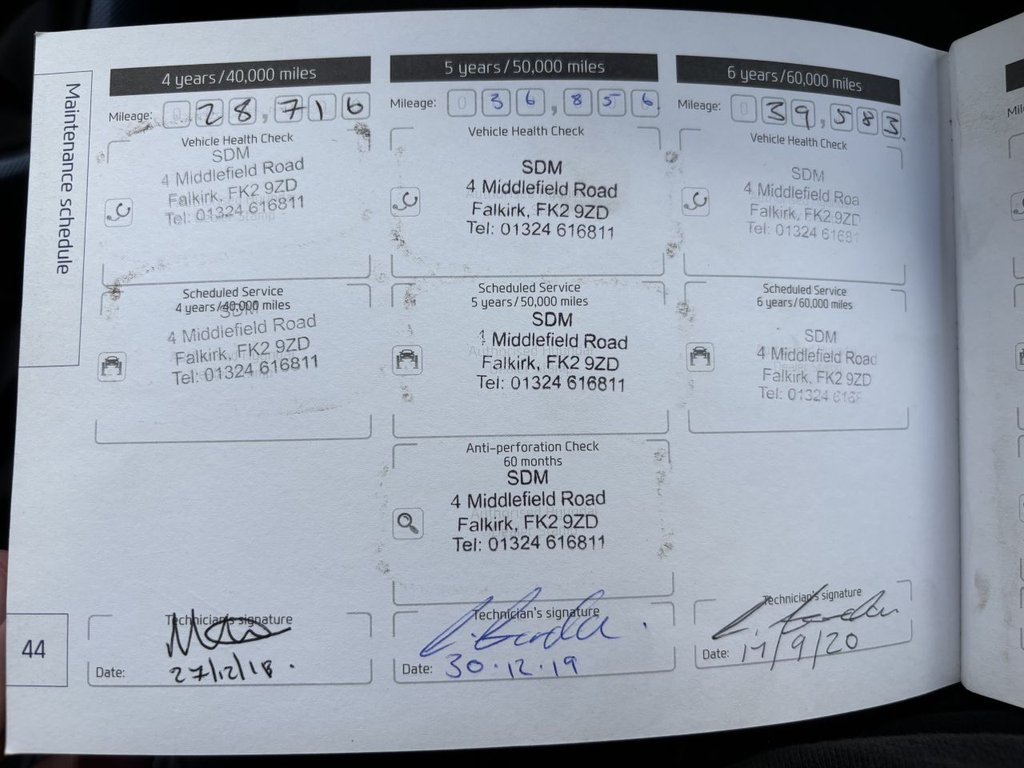 Maintenance schedule
4 years/40,000 miles
Mileage: 0 28,716
Vehicle Health Check
SDM
4 Middlefield Road
Falkirk, FK2 9ZD
Tel: 01324 616811
Scheduled Service
4 years/40,000 miles
SDM
4 Middlefield Road
Falkirk, FK2 9ZD
Tel: 01324 616811
Technician's signature
Date: 27/12/18.
5 years/50,000 miles
Mileage: 0 36,856
Vehicle Health Check
SDM
4 Middlefield Road
Falkirk, FK2 9ZD
Tel: 01324 616811
Scheduled Service
5 years/50,000 miles
SDM
4 Middlefield Road
Falkirk, FK2 9ZD
Tel: 01324 616811
Anti-perforation Check
60 months
SDM
4 Middlefield Road
Falkirk, FK2 9ZD
Tel: 01324 616811
Technician's signature
Date: 30.12.19
6 years/60,000 miles
Mileage: 0 39,583
Vehicle Health Check
SDM
4 Middlefield Road
Falkirk, FK2 9ZD
Tel: 01324 61681
Scheduled Service
6 years/60,000 miles
SDM
4 Middlefield Road
Falkirk, FK2 9ZD
Tel: 01324 6168
Technician's signature
Date: 17/9/20
44